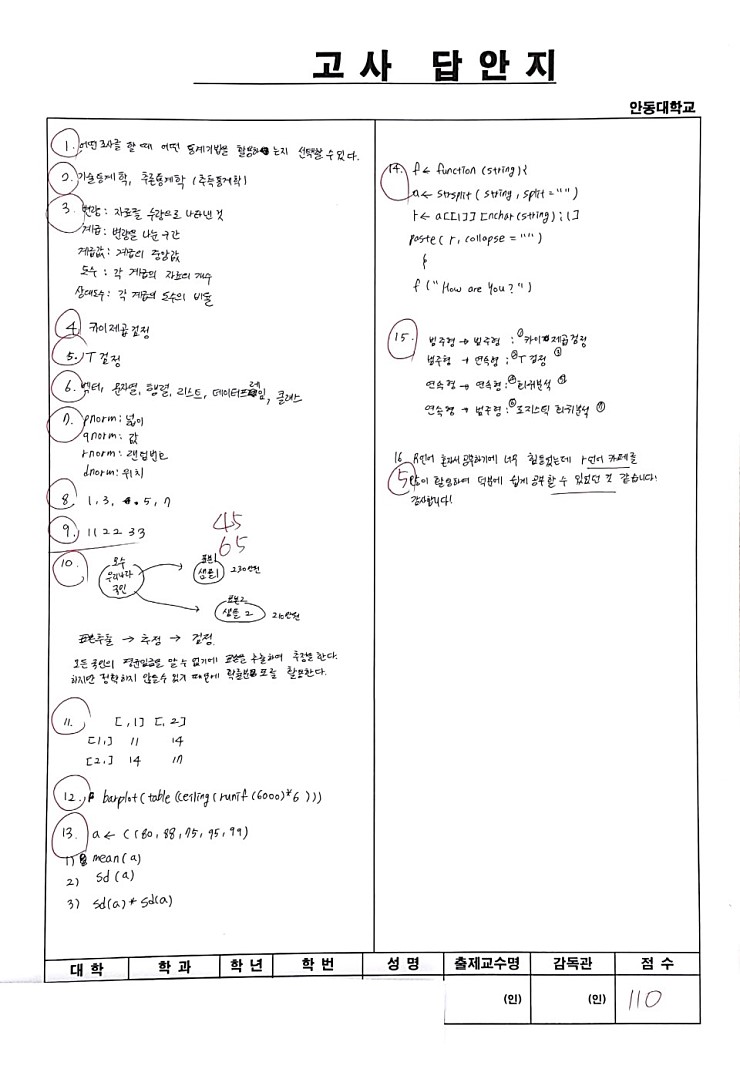 고사 답안지
안동대학교
1. 어떤 조사를 할 때 어떤 통계기법을 활용하는지 선택할 수 있다.
2. 기술통계학, 추론통계학 (추측통계학)
3. 변량 : 자료를 수량으로 나타낸 것
계급 : 변량을 나눈 구간
계급값 : 계급의 중앙값
도수 : 각 계급의 자료의 개수
상대도수 : 각 계급의 도수의 비율
4. 카이제곱검정
5. T검정
6. 벡터, 문자열, 행렬, 리스트, 데이터프레임, 클래스
7. pnorm : 넓이
qnorm : 값
rnorm : 랜덤변수
dnorm : 위치
8. 1, 3, 5, 7
9. 11 22 33
45
65
10. 모수
우리나라
국민
표본1
샘플1
230만원
표본2
샘플 2
210만원
표본추출 → 추정 → 검정
모든 국민의 평균임금을 알 수 없기에 표본을 추출하여 추정을 한다.
하지만 정확하지 않을수 있기 때문에 확률분포를 활용한다.
11. [,1] [,2]
[1,] 11 14
[2,] 14 17
12. barplot(table(ceiling(runif(6000)*6)))
13. a ← c(80, 88, 75, 95, 99)
1) mean(a)
2) sd(a)
3) sd(a)*sd(a)
14. f ← function(string){
a ← strsplit(string, split="")
r ← a[[1]][nchar(string):1]
paste(r, collapse="")
}
f("How are you?")
15. 범주형 → 범주형 : ① 카이제곱검정
범주형 → 연속형 : ② T검정 ③
연속형 → 연속형 : ④ 회귀분석 ⑤
연속형 → 범주형 : ⑥ 로지스틱 회귀분석 ⑦
16 R언어 혼자서 공부하기에 너무 힘들었는데 r언어 카페를
5
많이 활용하여 덕분에 쉽게 공부할 수 있었던 것 같습니다!
감사합니다!
대학 학과 학년 학번 성명 출제교수명 감독관 점수
(인) (인) 110